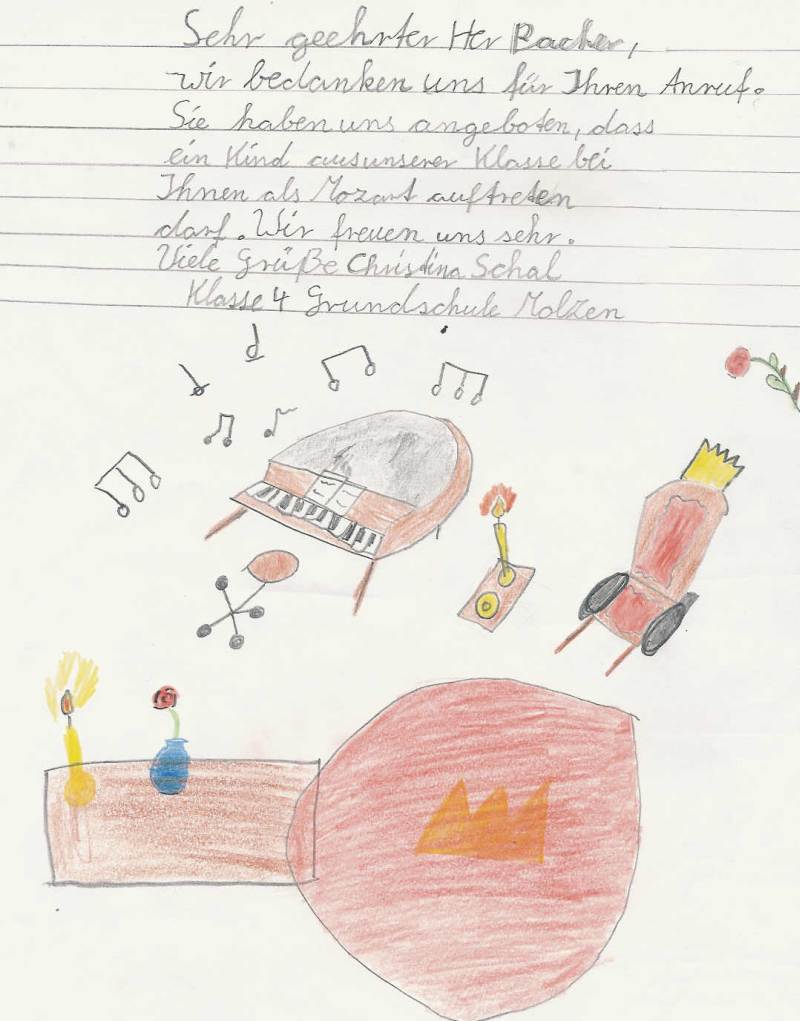 Sehr geehrter Her Pacher,
wir bedanken uns für Ihren Anruf.
Sie haben uns angeboten, dass
ein Kind aus unserer Klasse bei
Ihnen als Mozart auftreten
darf. Wir freuen uns sehr.
Viele Grüße Christina Schal
Klasse 4 Grundschule Molzen